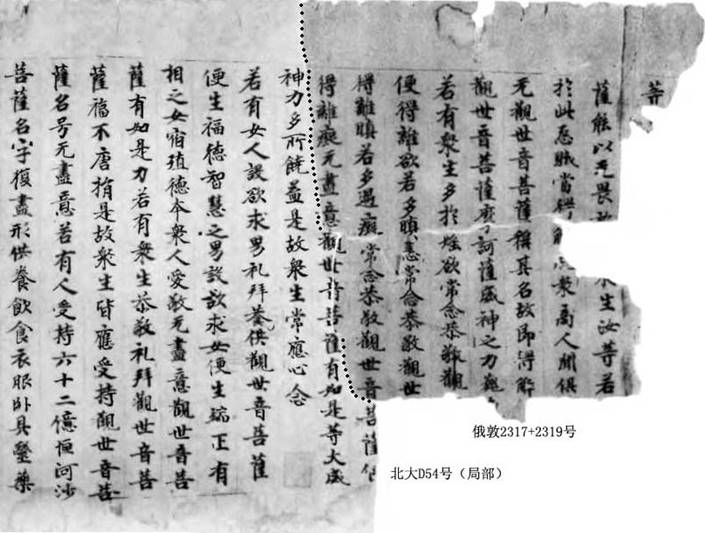 菩
薩能以无畏生汝等若
於此怨賊當得解衆商人聞俱
无觀世音菩薩稱其名故即得解
觀世音菩薩摩訶薩威神之力巍
若有衆生多於婬欲常念恭敬觀
便得離欲若多瞋恚常念恭敬觀世
得離瞋若多愚癡常念恭敬觀世音菩薩便
得離癡无盡意觀世音菩薩有如是等大威
神力多所饒益是故衆生常應心念
若有女人設欲求男礼拜養供觀世音菩薩
便生福德智慧之男設欲求女便生端正有
相之女宿殖德本衆人愛敬无盡意觀世音菩
薩有如是力若有衆生恭敬礼拜觀世音菩
薩福不唐捐是故衆生皆應受持觀世音菩
薩名号无盡意若有人受持六十二億恒河沙
菩薩名字復盡形供養飲食衣服卧具醫藥
俄敦2317+2319号
北大D54号（局部）